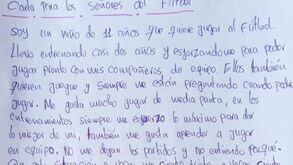 Carta para los Señores del Fútbol
Soy un niño de 11 años que quiere jugar al Fútbol.
Llevo entrenando casi dos años y esforzandome para poder
jugar pronto con mis compañeros de equipo. Ellos también
quieren juegue y siempre me están preguntando cuando podré
jugar. Me gusta mucho jugar de media punta, en los
entrenamientos siempre me esfuerzo lo máximo para dar
lo mejor de mi, también me gusta aprender a jugar
en equipo. No me dejan los partidos y no entiendo porque.